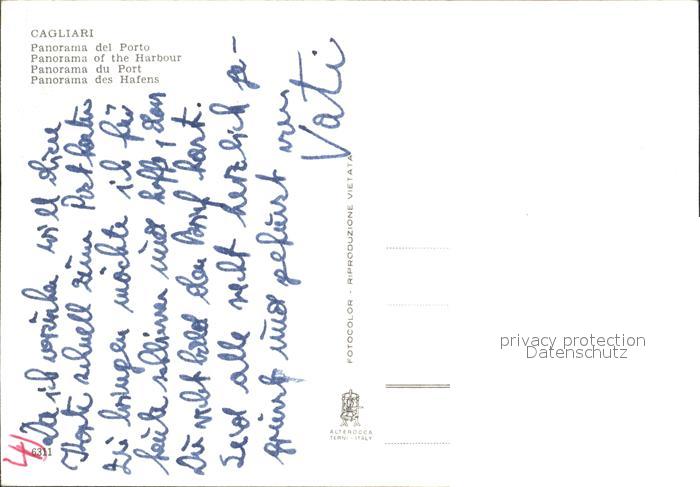 CAGLIARI
Panorama del Porto
Panorama of the Harbour
Panorama du Port
Panorama des Hafens
Da ich will diese
Karte schnell zum Postkasten
Zu bringen möchte ich für
heute schliessen und hoffe, dass
Du recht bald den Brief hast.
Seid alle recht herzlich ge-
grüsst und geküsst von
Vati
FOTOCOLOR - RIPRODUZIONE VIETATA
ALTEROCCA
TERNI - ITALY
privacy protection
Datenschutz
4)
6311